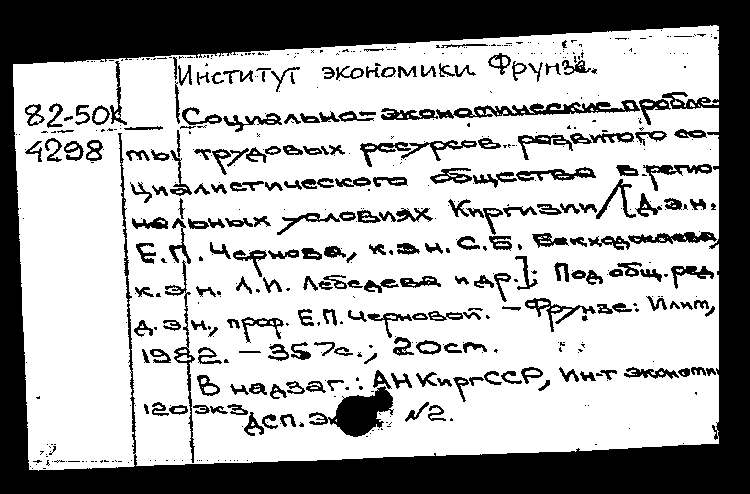 Институт экономики. Фрунзе.
82-50К Социально-экономические пробле-
4298 мы трудовых ресурсов развитого со-
циалистического общества в регио-
нальных условиях Киргизии/[Д.э.н.
Е.П. Чернова, к.э.н. С.Б.
к.э.н. Л.И. Лебедева и др.]; Под общ. ред.
д.э.н., проф. Е.П. Черновой. - Фрунзе: Илим,
1982. - 357с.; 20см.
В надзаг.: АН КиргССР, Ин-т экономи
120 экз. ДСП. Эк N2.